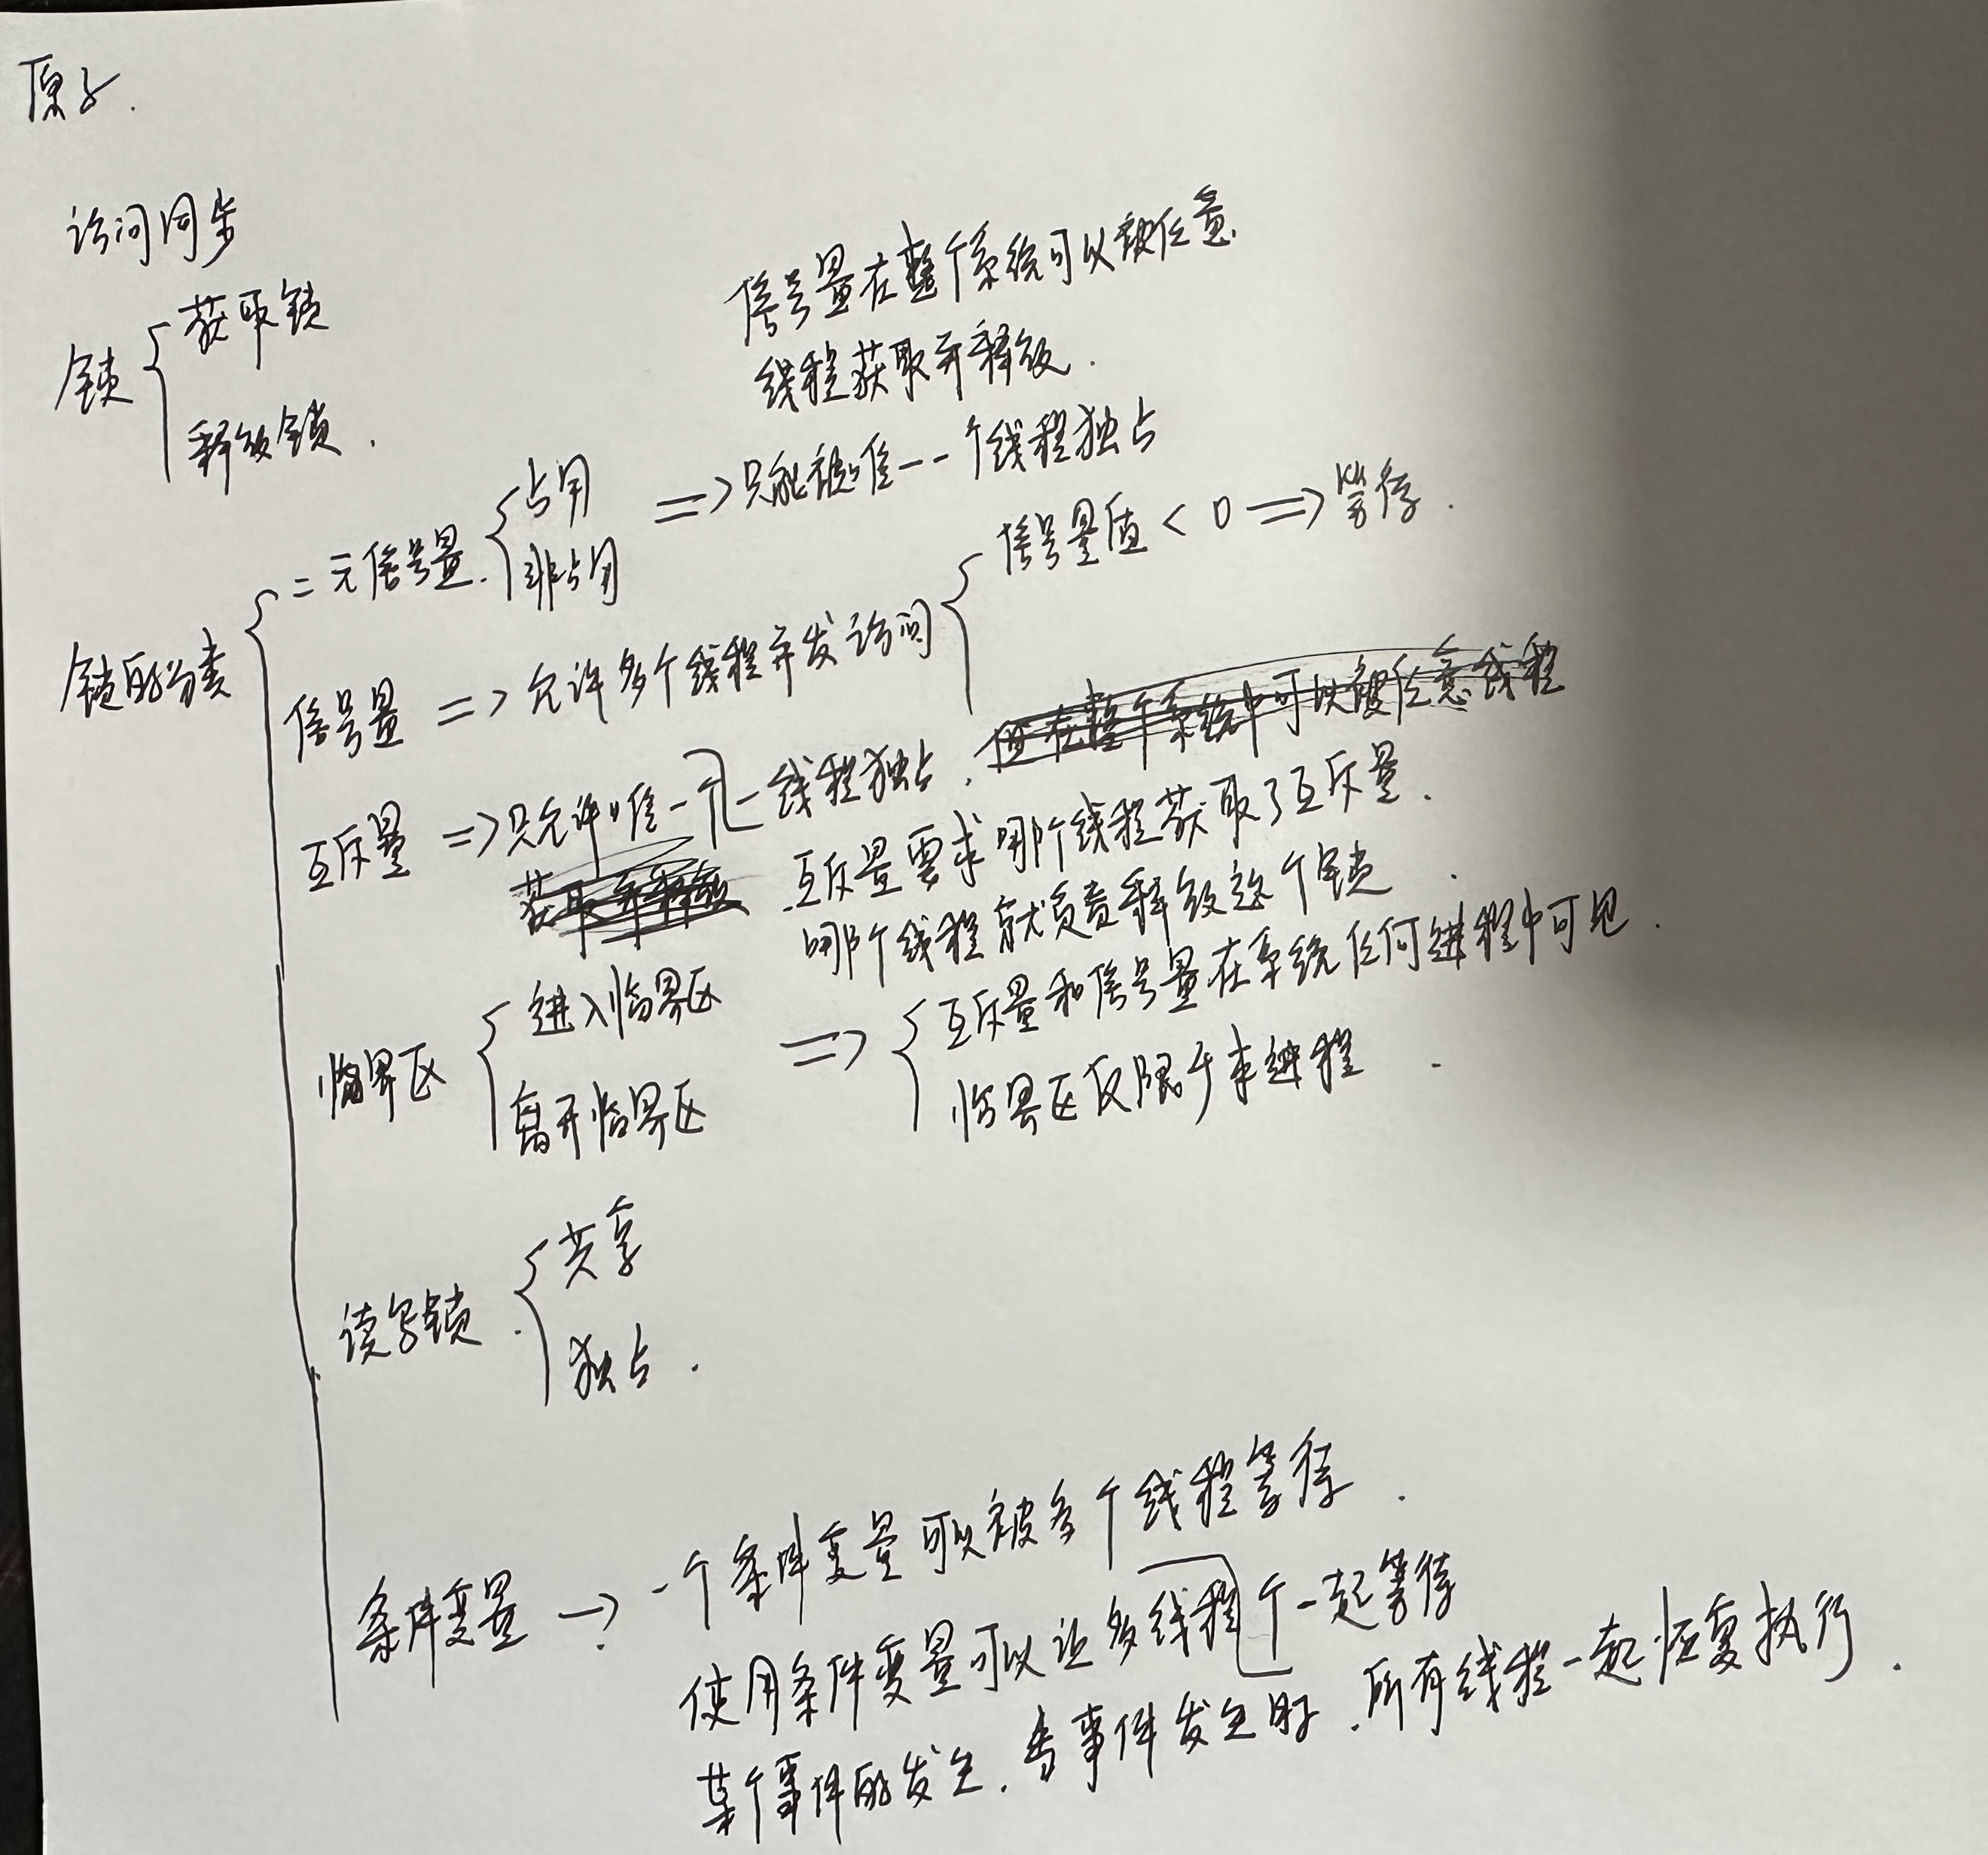 原子.
访问同步
锁
获取锁
释放锁.
信号量在整个系统可以被任意
线程获取并释放.
锁的分类
二元信号量.
占用
非占用
=> 只能被唯一一个线程独占
信号量 => 允许多个线程并发访问
信号量值 < 0 => 等待.
互斥量 => 只允许唯一个一线程独占.
但在整个系统中可以被任意线程
获取并释放
互斥量要求哪个线程获取了互斥量.
哪个线程就负责释放这个锁.
临界区
进入临界区
离开临界区
=>
互斥量和信号量在系统任何进程中可见.
临界区仅限于本进程.
读写锁.
共享
独占.
条件变量 -> 一个条件变量可以被多个线程等待.
使用条件变量可以让多线程个一起等待
某个事件的发生. 当事件发生时. 所有线程一起恢复执行.